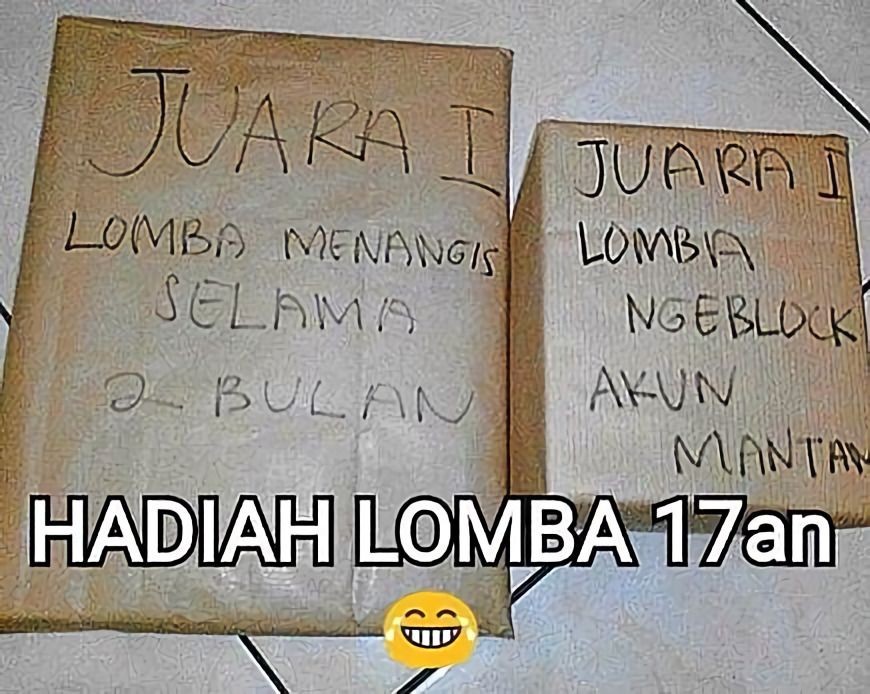 JUARA I
LOMBA MENANGIS
SELAMA
2 BULAN
JUARA I
LOMBA
NGEBLOCK
AKUN
MANTAN
HADIAH LOMBA 17an